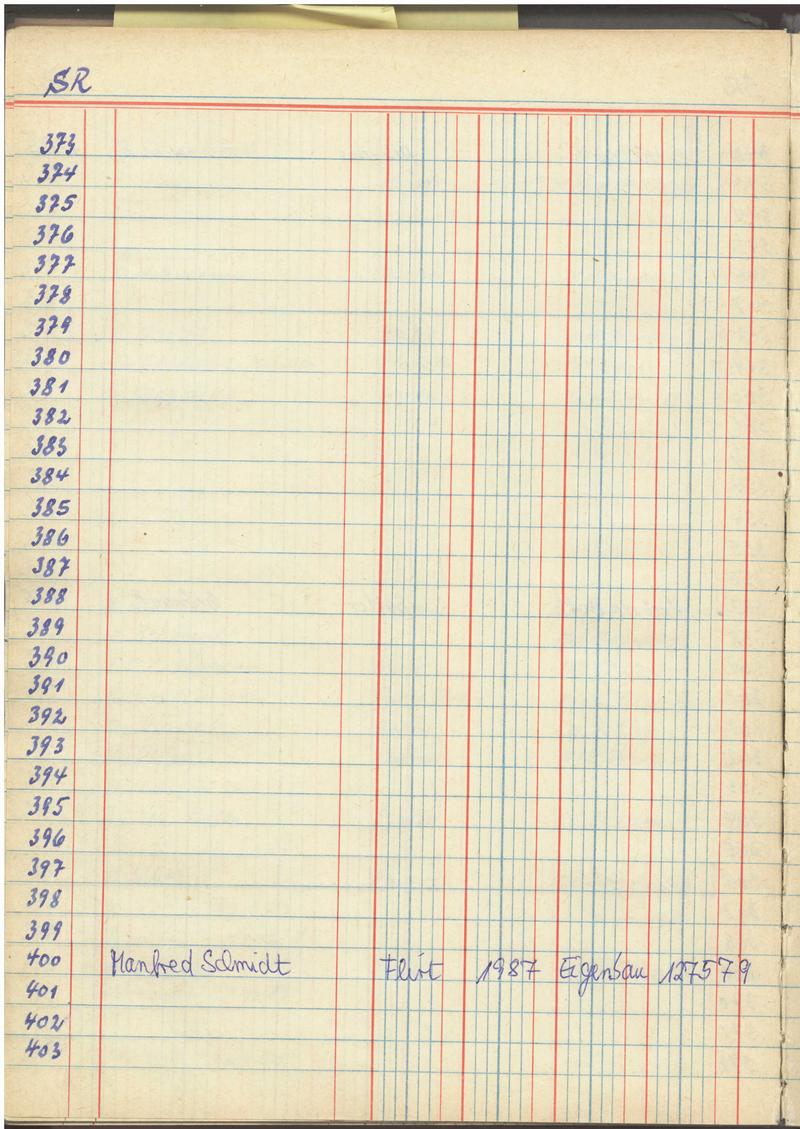 SR
373
374
375
376
377
378
379
380
381
382
383
384
385
386
387
388
389
390
391
392
393
394
395
396
397
398
399
400 Manfred Schmidt Flirt 1987 Eigenbau 127579
401
402
403